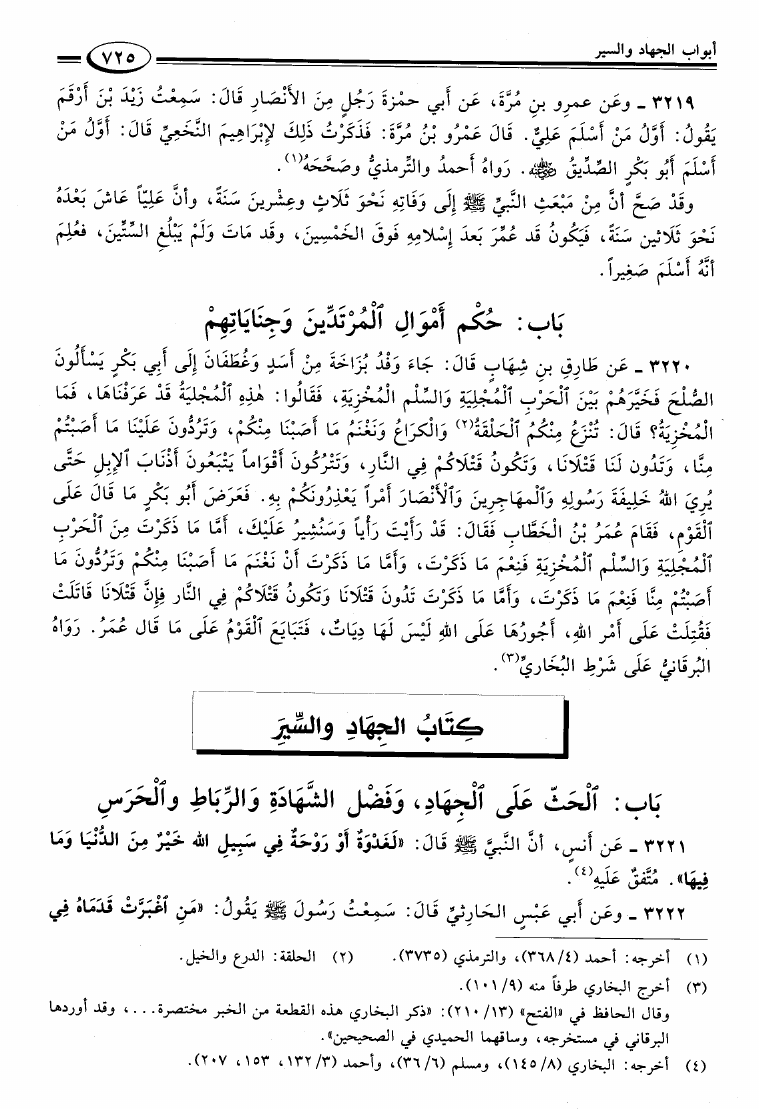 أبواب الجهاد والسير
٧٢٥
٣٢١٩ ـ وعَن عمرِو بنِ مُرَّةَ، عَن أَبي حمْزةَ رَجُلٍ مِنَ الأَنْصَارِ قَالَ: سَمِعْتُ زَيْدَ بْنَ أَرْقَمَ
يَقُولُ: أَوَّلُ مَنْ أَسْلَمَ عَلِيٌّ. قَالَ عَمْرُو بْنُ مُرَّةَ: فَذَكَرْتُ ذَلِكَ لإِبْرَاهِيمَ النَّخَعِيِّ قَالَ: أَوَّلُ مَنْ
أَسْلَمَ أَبُو بَكْرٍ الصِّدِّيقُ ﵁. رَوَاهُ أَحمدُ والتِّرمذيُّ وصَحَّحَهُ(١).
وقَدْ صَحَّ أنَّ مِنْ مَبْعَثِ النَّبيِّ ﷺ إِلَى وَفَاتِهِ نَحْوَ ثَلَاثٍ وعِشْرينَ سَنَةً، وأنَّ عَلِيّاً عَاشَ بَعْدَهُ
نَحْوَ ثَلَاثين سَنَةً، فَيَكُونُ قَد عُمِّرَ بَعدَ إِسْلامِهِ فَوقَ الخَمْسينَ، وقَد مَاتَ وَلَمْ يَبْلُغِ السِّتِّينَ، فَعُلِمَ
أنَّهُ أَسْلَمَ صَغِيراً.
بَاب: حُكْمِ أَمْوَالِ ٱلْمُرْتَدِّينَ وَجِنَايَاتِهِمْ
٣٢٢٠ ـ عَن طَارِقِ بنِ شِهَابٍ قَالَ: جَاءَ وَفْدُ بُزَاخَةَ مِنْ أَسَدٍ وَغُطَفَانَ إِلَى أَبِي بَكْرٍ يَسْأَلُونَ
الصُّلْحَ فَخَيَّرَهُمْ بَيْنَ ٱلْحَرْبِ ٱلْمُجْلِيَةِ وَالسِّلْمِ المُخْزِيَةِ، فَقَالُوا: هٰذِهِ ٱلْمُجْلِيَةُ قَدْ عَرَفْنَاهَا، فَمَا
الْمُخْزِيَةُ؟ قَالَ: تُنْزَعُ مِنْكُمُ ٱلْحَلْقَةُ(٢) وَالْكراعُ وَنَغْنَمُ مَا أَصَبْنَا مِنْكُمْ، وَتَرُدُّونَ عَلَيْنَا مَا أَصَبْتُمْ
مِنَّا، وَتَدُون لَنَا قَتْلَانَا، وَتَكُونُ قَتْلَاكُمْ فِي النَّارِ، وَتَتْرُكُونَ أَقْوَاماً يَتْبَعُونَ أَذْنَابَ الإِبِلِ حَتَّى
يُرِيَ اللهُ خَلِيفَةَ رَسُولِهِ وَٱلْمهَاجِرِينَ وَٱلْأَنْصَارَ أَمْراً يَعْذِرُونَكُمْ بِهِ. فَعَرَضَ أَبُو بَكْرٍ مَا قَالَ عَلَى
ٱلْقَوْمِ، فَقَامَ عُمَرُ بْنُ الْخَطَّابِ فَقَالَ: قَدْ رَأَيْتَ رَأْياً وَسَنُشِيرُ عَلَيْكَ، أَمَّا مَا ذَكَرْتَ مِنَ ٱلْحَرْبِ
ٱلْمُجْلِيَةِ وَالسِّلْمِ ٱلْمُخْزِيَةِ فَنِعْمَ مَا ذَكَرْتَ، وَأَمَّا مَا ذَكَرْتَ أَنْ نَغْنَمَ مَا أَصَبْنَا مِنْكُمْ وَتَرُدُّونَ مَا
أَصَبْتُمْ مِنَّا فَنِعْمَ مَا ذَكَرْتَ، وَأَمَّا مَا ذَكَرْتَ تَدُونَ قَتْلَانَا وَتَكُونُ قَتْلَاكُمْ فِي النَّارِ فَإِنَّ قَتْلَانَا قَاتَلَتْ
فَقُتِلَتْ عَلَى أَمْرِ اللهِ، أُجُورُهَا عَلَى اللهِ لَيْسَ لَهَا دِيَاتٌ، فَتَبَايَعَ ٱلْقَوْمُ عَلَى مَا قَال عُمَرُ. رَوَاهُ
البُرقانيُّ عَلَى شَرْطِ البُخَاريِّ(٣).
كِتَابُ الجِهَادِ والسِّيَرِ
بَاب: ٱلْحَثِّ عَلَى ٱلْجِهَادِ، وَفَضْلِ الشَّهَادَةِ وَالرِّبَاطِ وٱلْحَرَسِ
٣٢٢١ ـ عَن أَنسٍ، أنَّ النَّبيَّ ﷺ قَالَ: «لَغَدْوَةٌ أَوْ رَوْحَةٌ فِي سَبِيلِ الله خَيْرٌ مِنَ الدُّنْيَا وَمَا
فِيهَا». مُتَّفَقٌ عَلَيهِ(٤).
٣٢٢٢ ـ وَعَن أَبي عَبْسٍ الحَارِثيِّ قَالَ: سَمِعْتُ رَسُولَ ﷺ يَقُولُ: «مَنِ ٱغْبَرَّتْ قَدَمَاهُ فِي
(١) أخرجه: أحمد (٣٦٨/٤)، والترمذي (٣٧٣٥). (٢) الحلقة: الدرع والخيل.
(٣) أخرج البخاري طرفاً منه (١٠١/٩).
وقال الحافظ في «الفتح» (٢١٠/١٣): «ذكر البخاري هذه القطعة من الخبر مختصرة...، وقد أوردها
البرقاني في مستخرجه، وساقهما الحميدي في الصحيحين».
(٤) أخرجه: البخاري (١٤٥/٨)، ومسلم (٣٦/٦)، وأحمد (١٣٢/٣، ١٥٣، ٢٠٧).